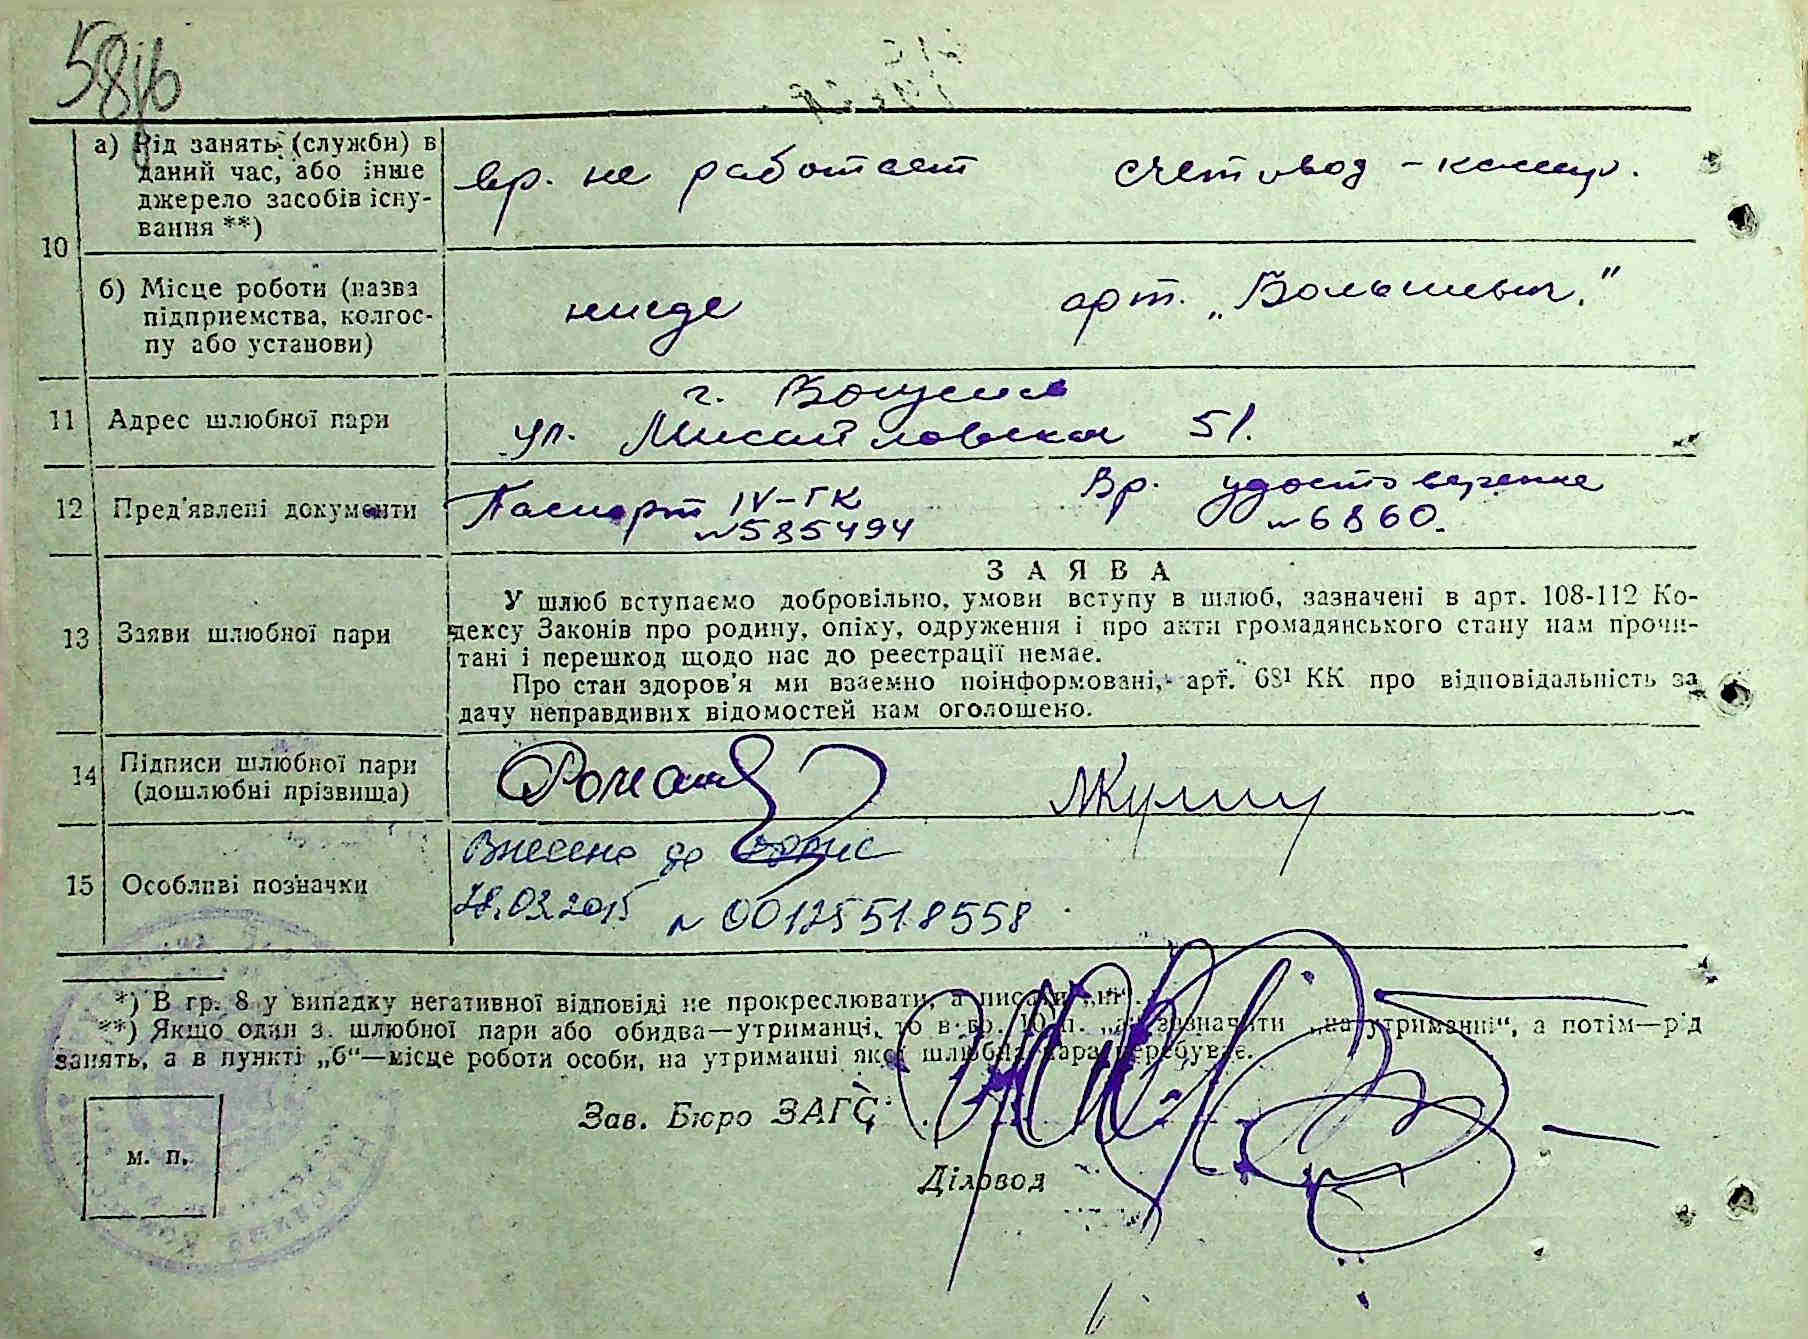 58/б
10
а) Рід занять (служби) в
даний час, або інше
джерело засобів існу-
вання **)
вр. не работает счетовод -
б) Місце роботи (назва
підприємства, колгос-
пу або установи)
нигде арт. „Большевик."
11 Адрес шлюбної пари
г.
ул. Михайловская 51.
12 Пред'явлені документи
Паспорт IV-ГК Вр. удостоверение
№585494 №6860.
13 Заяви шлюбної пари
ЗАЯВА
У шлюб вступаємо добровільно, умови вступу в шлюб, зазначені в арт. 108-112 Ко-
дексу Законів про родину, опіку, одруження і про акти громадянського стану нам прочи-
тані і перешкод щодо нас до реєстрації немає.
Про стан здоров'я ми взаємно поінформовані, арт. 68¹ КК про відповідальність за
дачу неправдивих відомостей нам оголошено.
14 Підписи шлюбної пари
(дошлюбні прізвища)
15 Особливі позначки
Внесено до
28.03.2015 № 00125518558
*) В гр. 8 у випадку негативної відповіді не прокреслювати, а писати „ні".
**) Якщо один з шлюбної пари або обидва—утриманці, то в гр. 10 п. „а" зазначити „на утриманні", а потім—рід
занять, а в пункті „б"—місце роботи особи, на утриманні якої шлюбна пара перебуває.
Зав. Бюро ЗАГС
м. п.
Діловод